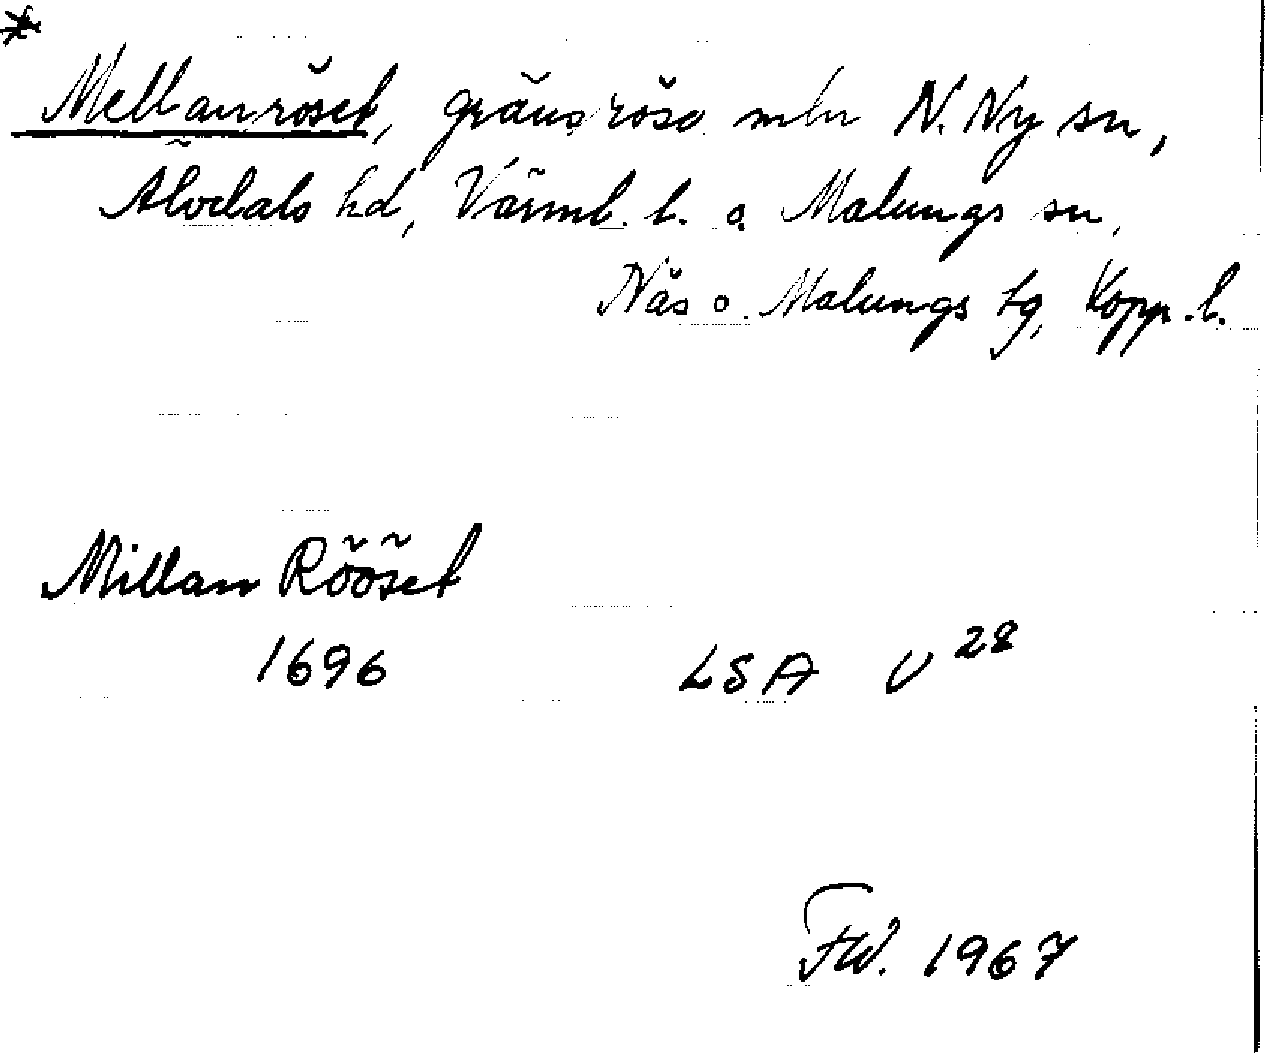 *
Mellanröset, gränsröse mln N. Ny sn,
Älvdals hd, Värml. l. o. Malungs sn,
Näs o. Malungs tg, Kopp. l.
Millan Rööset
1696 LSA U 28
FW. 1967